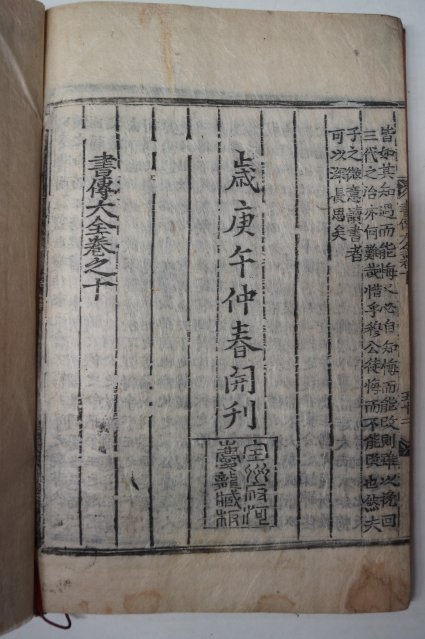 書傳大全卷十
皆如其知過而能悔又必自知悔而能改則雖以挽回
三代之治亦何難哉惜乎穆公徒悔而不能改也然夫
子之微意讀書者
可以深長思矣
歲庚午仲春開刊
全州府河
慶龍藏板
書傳大全卷之十